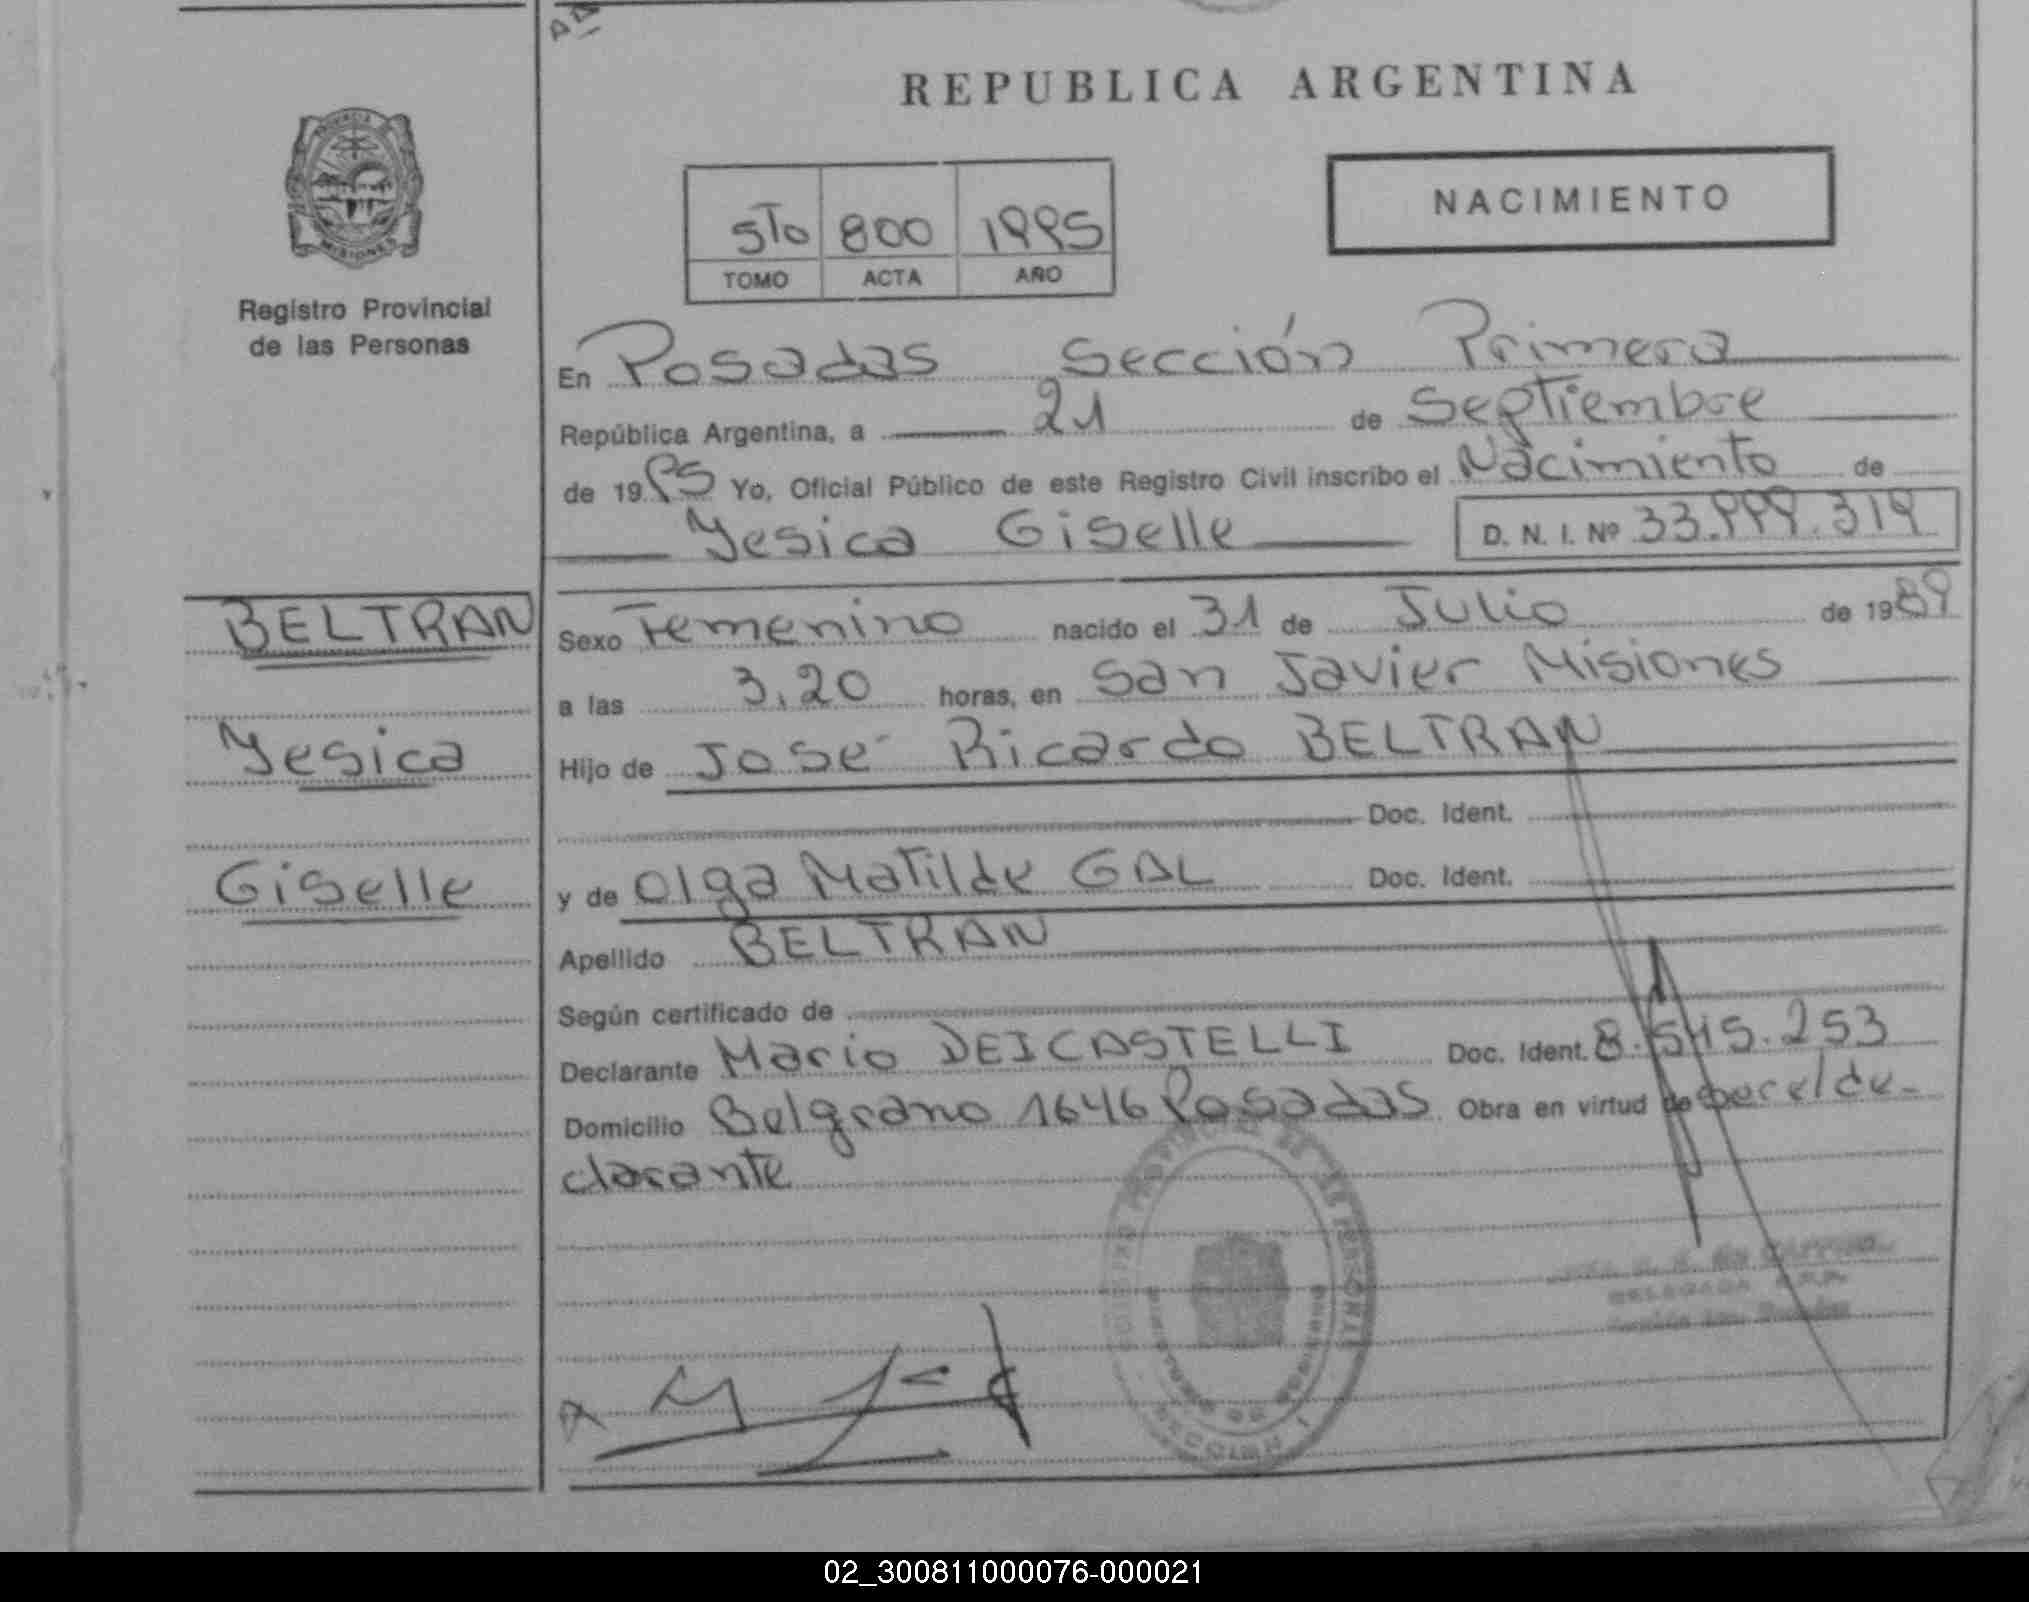 REPUBLICA ARGENTINA
NACIMIENTO
5to 800 1995
TOMO ACTA AÑO
PROVINCIA
MISIONES
Registro Provincial
de las Personas
En Posadas Sección Primera
República Argentina, a 21 de Septiembre
de 1995 Yo, Oficial Público de este Registro Civil inscribo el Nacimiento de
Yesica Giselle D. N. I. Nº 33.999.319
BELTRAN
Yesica
Giselle
Sexo Femenino nacido el 31 de Julio de 1989
a las 3,20 horas, en San Javier Misiones
Hijo de José Ricardo BELTRAN
Doc. Ident.
y de Olga Matilde GAL Doc. Ident.
Apellido BELTRAN
Según certificado de
Declarante Mario DEICASTELLI Doc. Ident. 8.545.253
Domicilio Belgrano 1646 Posadas Obra en virtud de ser el de-
clarante
REGISTRO PROVINCIAL DE LAS PERSONAS
DELEGADA
02_300811000076-000021